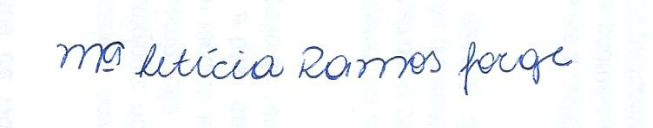 Mª Letícia Ramos Jorge